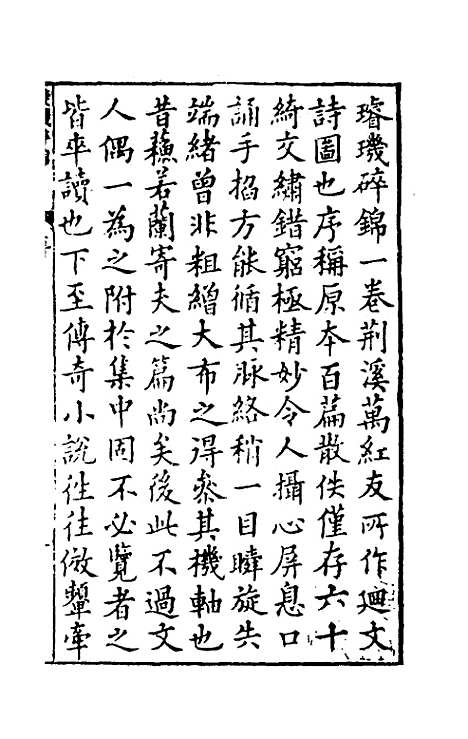 璿璣碎錦一卷荆溪萬紅友所作廻文
詩圖也序稱原本百篇散佚僅存六十
綺文繡錯窮極精妙令人攝心屏息口
誦手搯方能循其脉絡稍一目瞕旋失
端緒曾非粗繒大布之得參其機軸也
昔蘓若蘭寄夫之篇尚矣後此不過文
人偶一為之附於集中固不必覽者之
皆卒讀也下至傳奇小說徃徃倣顰牽